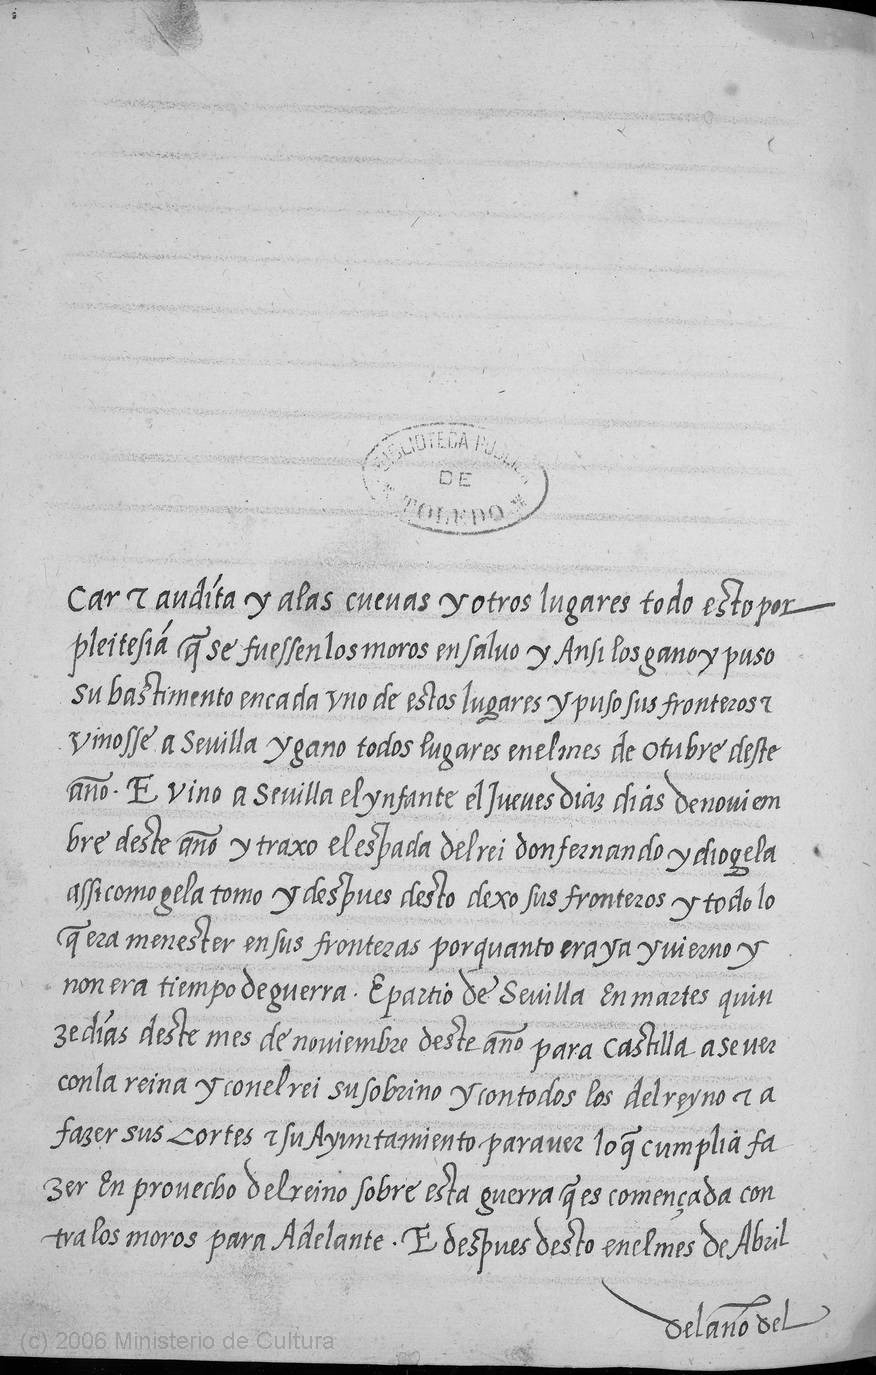 BIBLIOTECA PUBLICA
DE
TOLEDO
Car τ audíta y alas cueuas y otros lugares todo esto por
pleitesiá q̃ se fuessen los moros en saluo y Ansi los gano y puso
su bastimento en cada vno de estos lugares y puso sus fronteros τ
vinosse a Seuilla y gano todos lugares en el mes de otubre deste
año. E vino a Seuilla el ynfante el Jueues diaz dias de nouiem
bre deste año y traxo el espada del rei don fernando y diogela
assi como gela tomo y despues desto dexo sus fronteros y todo lo
q̃ era menester en sus fronteras por quanto era ya yuierno y
non era tiempo de guerra. E partio de Seuilla En martes quin
ze días deste mes de nouiembre deste año para Castilla a se uer
con la reina y con el rei su sobrino y con todos los del reyno τ a
fazer sus cortes τ su Ayuntamiento para uer lo q̃ cumplia fa
zer En prouecho del reino sobre esta guerra q̃ es començada con
tra los moros para Adelante. E despues desto en el mes de Abril
del año del
(c) 2006 Ministerio de Cultura